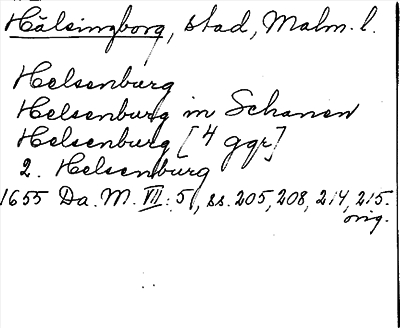 Hälsingborg, stad, Malm. l.
Helsenburg
Helsenburg in Schonen
Helsenburg [4 ggr]
2. Helsenburg
1655 Da. M. VII: 5, ss. 205, 208, 214, 215.
orig.